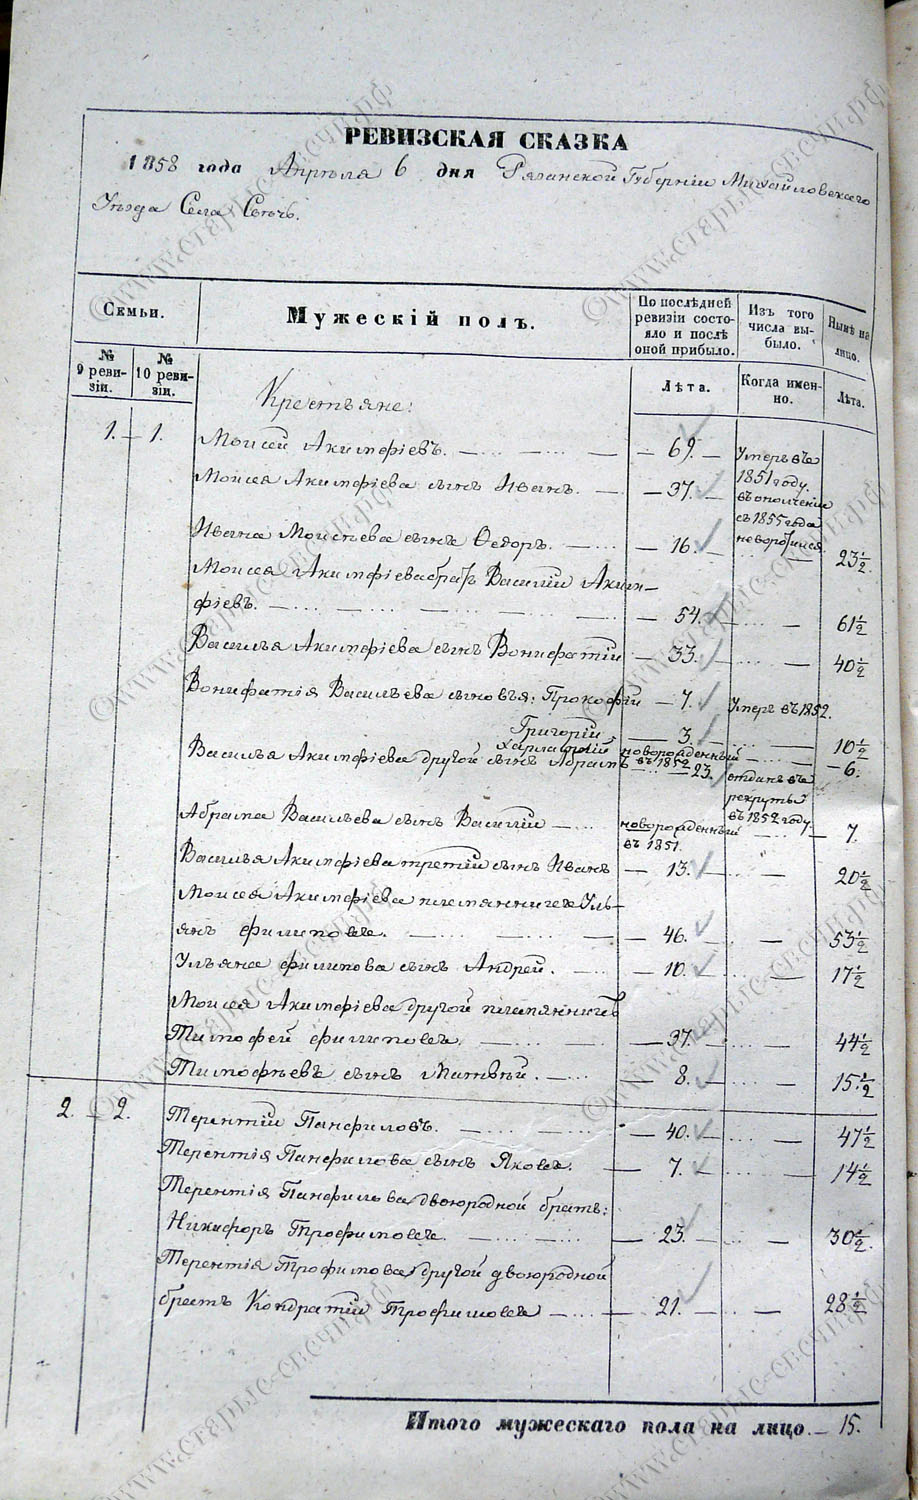 РЕВИЗСКАЯ СКАЗКА
1858 года Апрѣля 6 дня Рязанской Губерніи Михайловскаго
Уѣзда Села
Семьи.
Мужескій полъ.
По послѣдней ревизіи состояло и послѣ оной прибыло.
Изъ того числа выбыло.
Нынѣ на лицо.
№ 9 ревизіи.
№ 10 ревизіи.
Лѣта.
Когда именно.
Лѣта.
Крестьяне:
1. — 1. Моисей Акимфіевъ. — 69. — Умеръ въ 1851 году.
Моисея Акимфіева сынъ Иванъ. — 37. — въ ополченіе съ 1855 года невороtился.
Ивана Моисѣева сынъ Ѳедоръ. — 16. — 23½.
Моисея Акимфіева братъ Василій Аким-
фіевъ. — 54. — 61½
Василья Акимфіева сынъ Вонифатій — 33. — 40½
Вонифатія Васильева сыновья: Прокофій — 7. Умеръ въ 1852.
Григорій — 3. — 10½
Харлампій новорожденный въ 1852 — 6.
Василья Акимфіева другой сынъ Абрамъ — 23. отданъ въ рекруты въ 1852 году.
Абрама Васильева сынъ Василій — новорожденный въ 1851. — 7.
Василья Акимфіева третій сынъ Иванъ — 13. — 20½
Моисея Акимфіева племянникъ Уль-
янъ Филиповъ. — 46. — 53½
Ульяна Филипова сынъ Андрей. — 10. — 17½
Моисея Акимфіева другой племянникъ
Тимофей Филиповъ. — 37. — 44½
Тимофѣевъ сынъ Матвѣй. — 8. — 15½
2. — 2. Терентій Панфиловъ. — 40. — 47½
Терентія Панфилова сынъ Яковъ. — 7. — 14½
Терентія Панфилова двоюродной братъ:
Никифоръ Трофимовъ. — 23. — 30½.
Терентія Трофимова другой двоюродной
братъ Кондратій Трофимовъ — 21. — 28½
Итого мужескаго пола на лицо. — 15.
©www.старые-свечи.рф